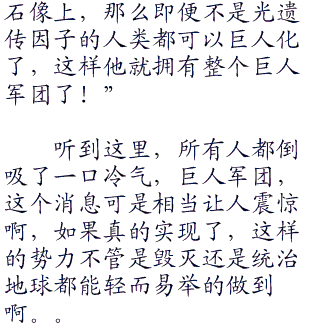 石像上，那么即便不是光遗
传因子的人类都可以巨人化
了，这样他就拥有整个巨人
军团了！”
听到这里，所有人都倒
吸了一口冷气，巨人军团，
这个消息可是相当让人震惊
啊，如果真的实现了，这样
的势力不管是毁灭还是统治
地球都能轻而易举的做到
啊。。